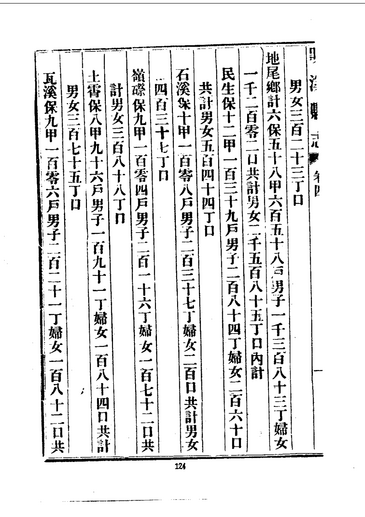 縣志 卷四
男女三百二十三丁口
地尾鄉計六保五十八甲六百五十八戶男子一千三百八十三丁婦女
一千二百零二口共計男女二千五百八十五丁口內計
民生保十二甲一百三十九戶男子二百八十四丁婦女二百六十口
共計男女五百四十四丁口
石溪保十甲一百零八戶男子二百三十七丁婦女二百口共計男女
四百三十七丁口
嶺磜保九甲一百零四戶男子二百一十六丁婦女一百七十二口共
計男女三百八十八丁口
土霽保八甲九十六戶男子一百九十一丁婦女一百八十四口共計
男女三百七十五丁口
瓦溪保九甲一百零六戶男子二百二十一丁婦女一百八十二口共
124